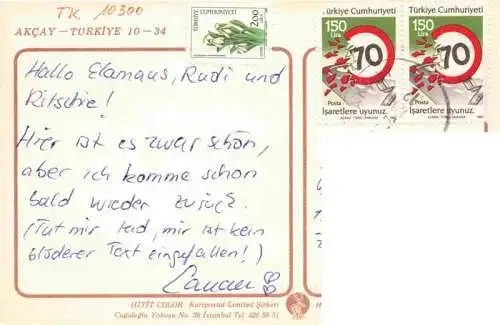 TK 10300
AKÇAY – TÜRKİYE 10 – 34
TÜRKİYE CUMHURİYETİ 200
Türkiye Cumhuriyeti
150
Lira
70
Posta
İşaretlere uyunuz.
Türkiye Cumhuriyeti
150
Lira
70
Posta
İşaretlere uyunuz.
Hallo Elamaus, Rudi und
Ritschie!
Hier ist es zwar schön,
aber ich komme schon
bald wieder zurück.
(Tut mir leid, mir ist kein
blöderer Text eingefallen!)
HİTİT COLOR Kartpostal Limited Şirketi
Cağaloğlu Yokuşu No 39 İstanbul Tel 526 58 51